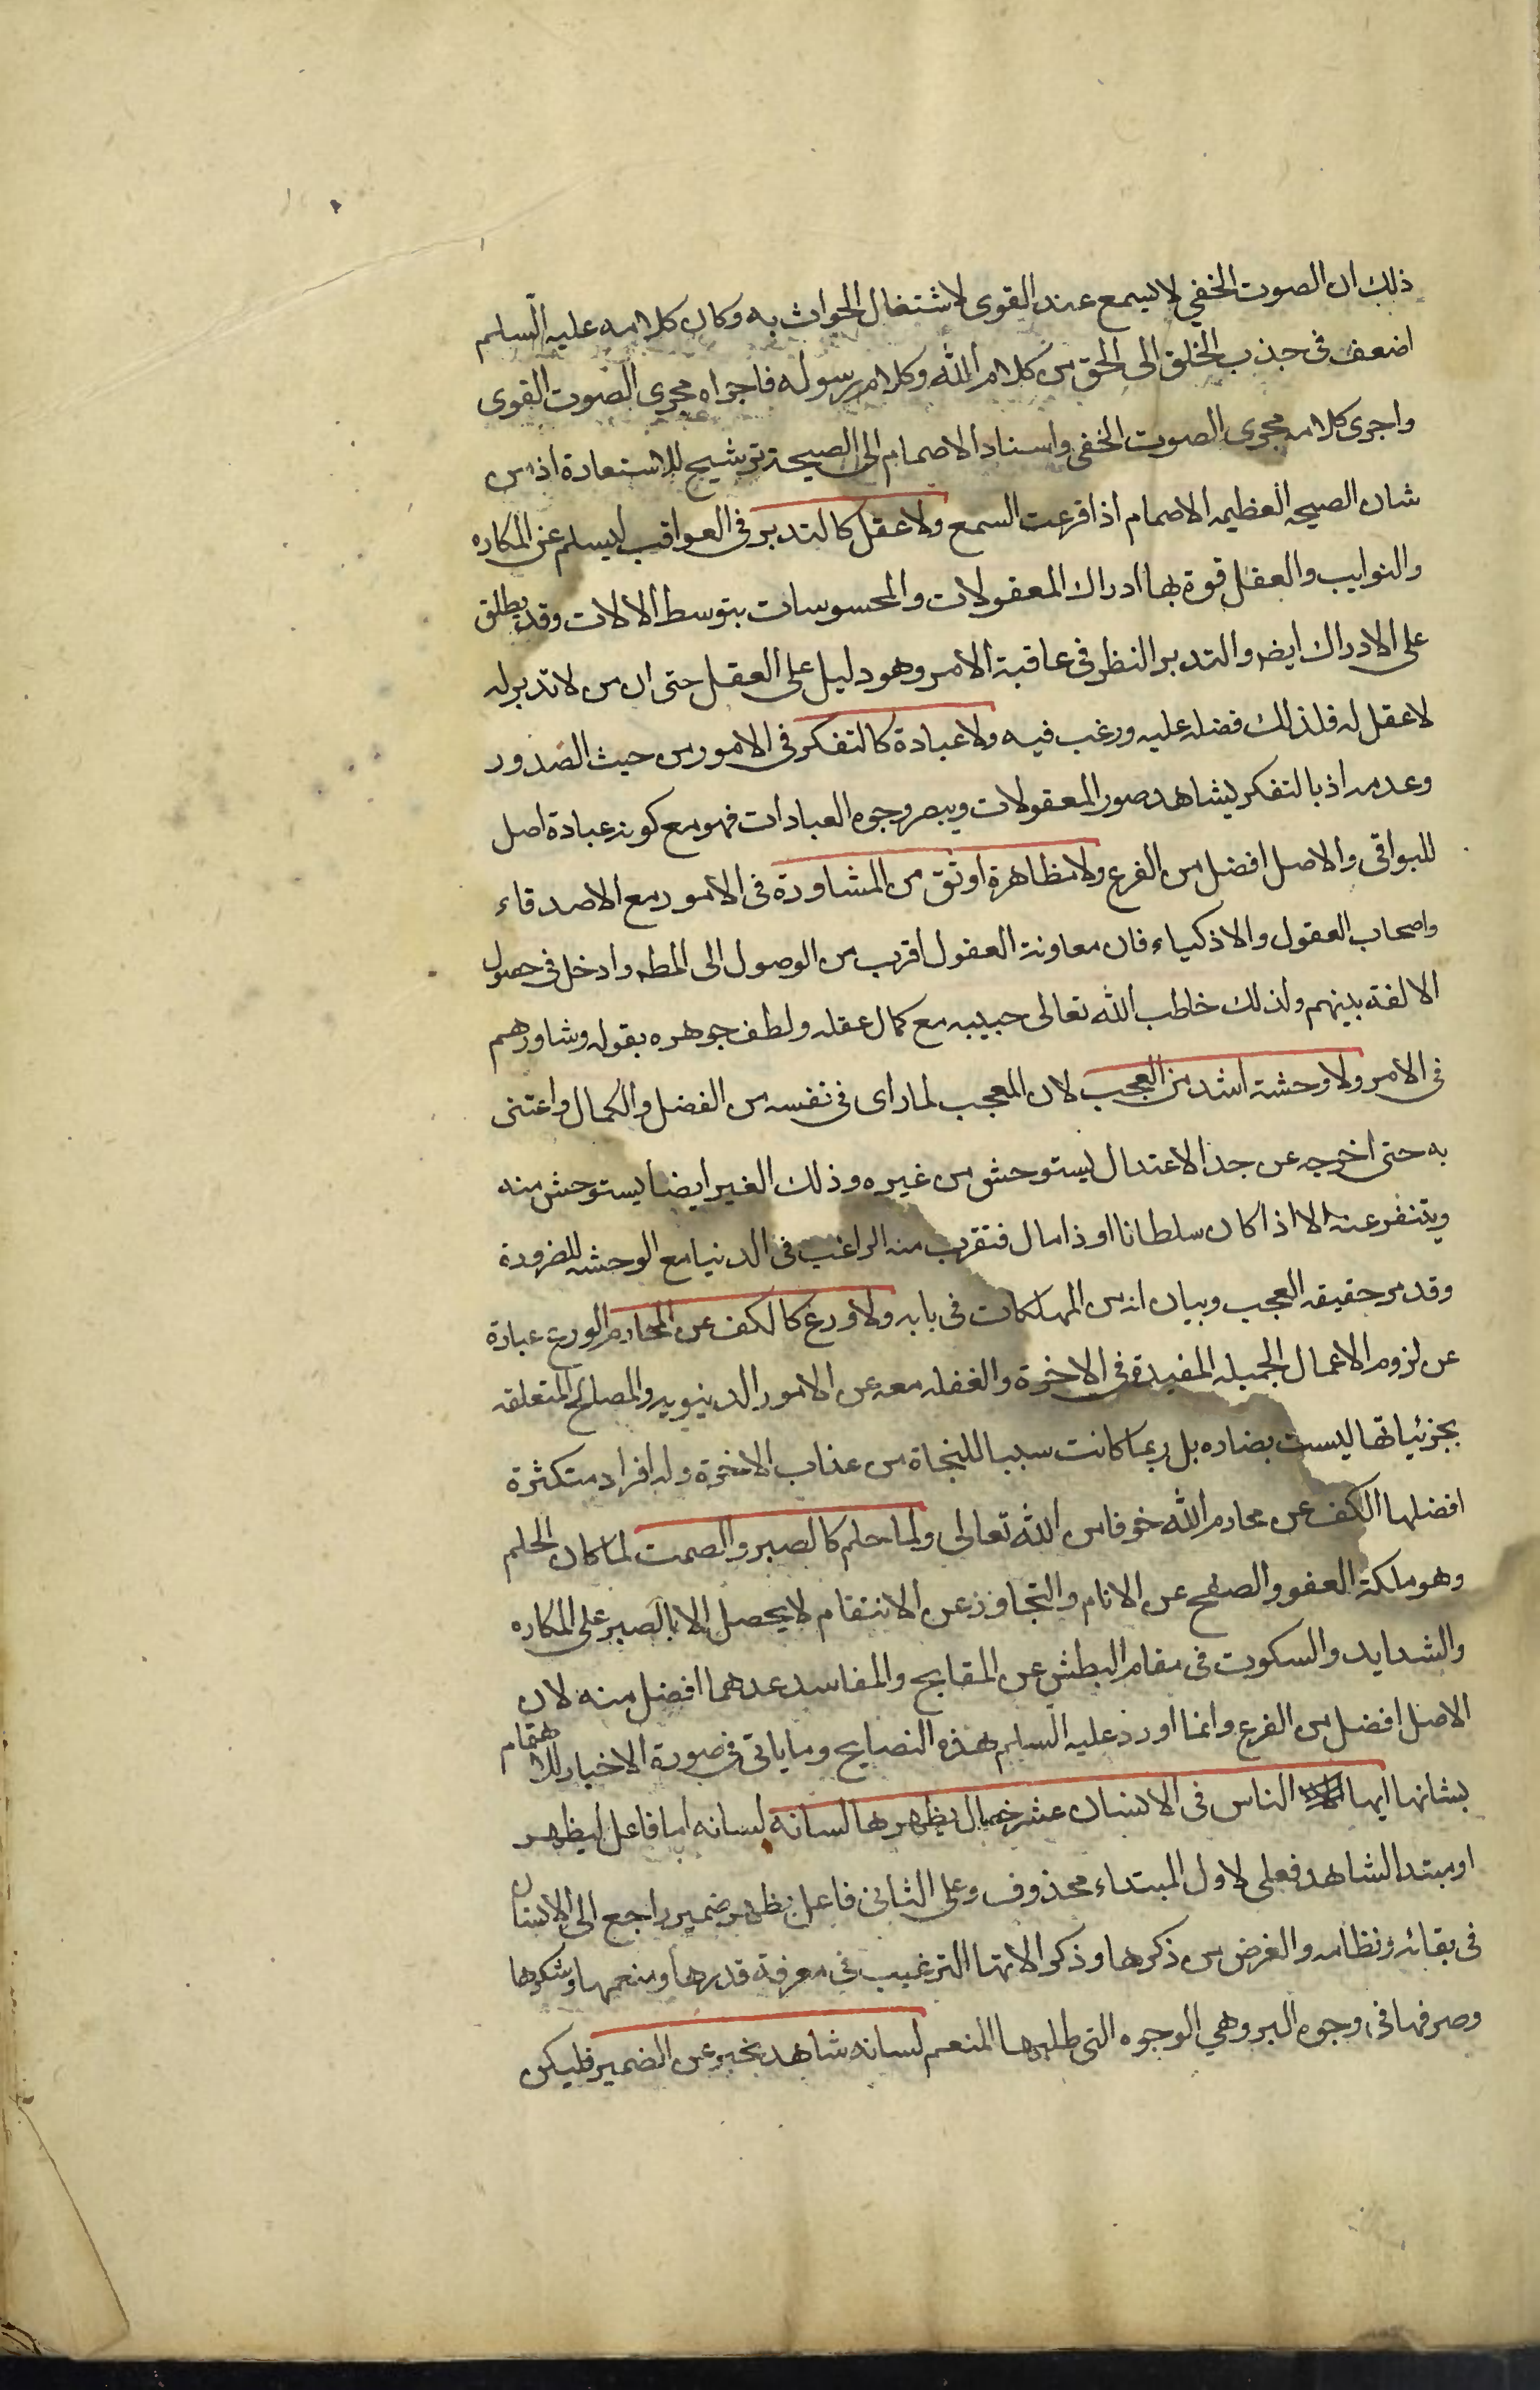 ذلك ان الصوت الخفي لا يسمع عند القوى لاشتغال الحواث به وكان كلامه عليه السلم
اضعف فى جذب الخلق الى الحق من كلام الله وكلام رسوله فاجراه مجرى الصوت القوى
واجرى كلامه مجرى الصوت الخفى واسناد الاصمام الى الصيحة ترشيح للاستعادة اذ من
شان الصيحه العظيمه الاصمام اذا قرعت السمع ولا عقل كالتدبر فى العواقب ليسلم عن المكاره
والنوايب والعقل قوة بها ادراك المعقولات والمحسوسات بتوسط الالات وقد يطلق
على الادراك ايض والتدبر النظر فى عاقبة الامر وهو دليل على العقل حتى ان من لا تدبر له
لا عقل له فلذلك فضله عليه ورغب فيه ولا عبادة كالتفكر فى الامور من حيث الصدور
وعدمه اذ بالتفكر يشاهد صور المعقولات ويبصر وجوه العبادات فهو مع كونه عبادة اصل
للبواقى والاصل افضل من الفرع ولا مظاهرة اوثق من المشاورة فى الامور مع الاصدقاء
واصحاب العقول والاذكياء فان معاونة العقول اقرب من الوصول الى المطه وادخل فى حصول
الالفة بينهم ولذلك خاطب الله تعالى حبيبه مع كمال عقله ولطف جوهره بقوله وشاورهم
فى الامر ولا وحشة اشد من العجب لان المعجب لما راى فى نفسه من الفضل والكمال واعتنى
به حتى اخرجه عن حد الاعتدال يستوحش من غيره وذلك الغير ايضا يستوحش منه
ويتنفر عنه الا اذا كان سلطانا او ذا مال فتقرب منه الراغب فى الدنيا مع الوحشه للضرورة
وقد مر حقيقه العجب وبيان انه من المهلكات فى بابه ولا ورع كالكف عن المحارم الورع عبارة
عن لزوم الاعمال الجميله المفيدة فى الاخرة والغفله معه عن الامور الدنيويه والمصالح المتعلقه
بجزئياتها ليست بضاره بل ربما كانت سببا للنجاة من عذاب الاخرة وله افراد متكثرة
افضلها الكف عن محارم الله خوفا من الله تعالى ولما حلم كالصبر والصمت لما كان الحلم
وهو ملكة العفو والصفح عن الانام والتجاوز عن الانتقام لا يحصل الا بالصبر على المكاره
والشدايد والسكوت فى مقام البطش عن المقابح والمفاسد عدهما افضل منه لان
الاصل افضل من الفرع وانما اورد عليه السلم هذه النصايح وما ياتى فى صورة الاخبار للاهتمام
بشانها ايها الناس فى الانسان عشر خصال يظهرها لسانه لسانه اما فاعل ليظهر
او مبتدا لشاهد فعلى لاول المبتداء محذوف وعلى الثانى فاعل يظهر ضمير راجع الى الانسان
فى بقائه ونظامه والغرض من ذكرها وذكر الاتها الترغيب فى معرفة قدرها ومنعمها وشكرها
وصرفها فى وجوه البر وهي الوجوه التى طلبها المنعم لسانه شاهد يخبر عن الضمير فليكن